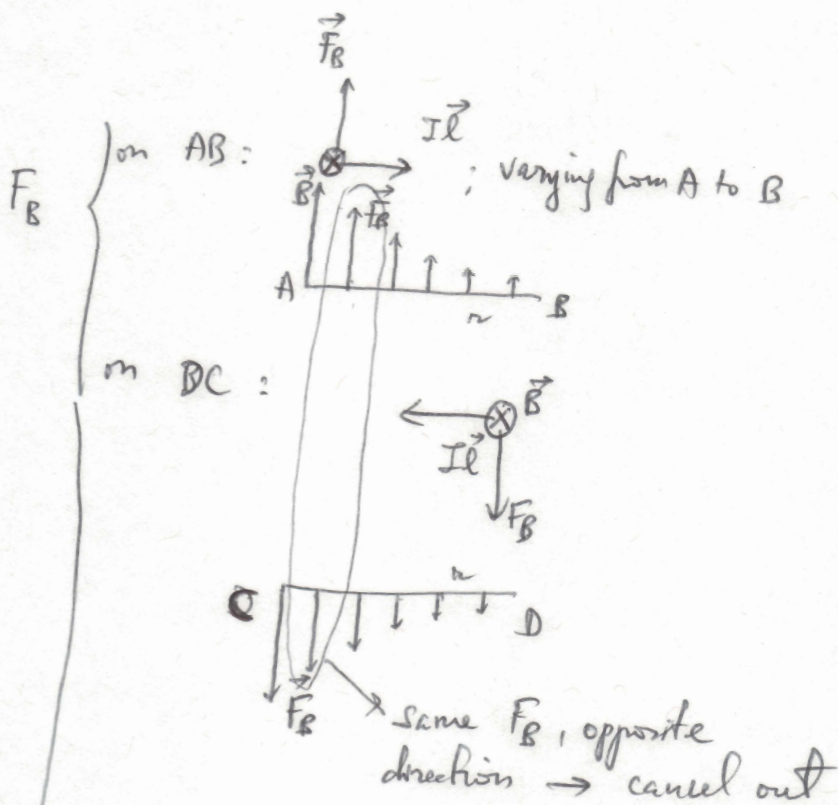 F⃗_B
Iℓ⃗
F_B { on AB : ⊗ ; varying from A to B
B⃗
F⃗_B
A B
r
on DC :
B⃗
Iℓ⃗
F_B
r
C D
F⃗_B
same F_B, opposite
direction → cancel out